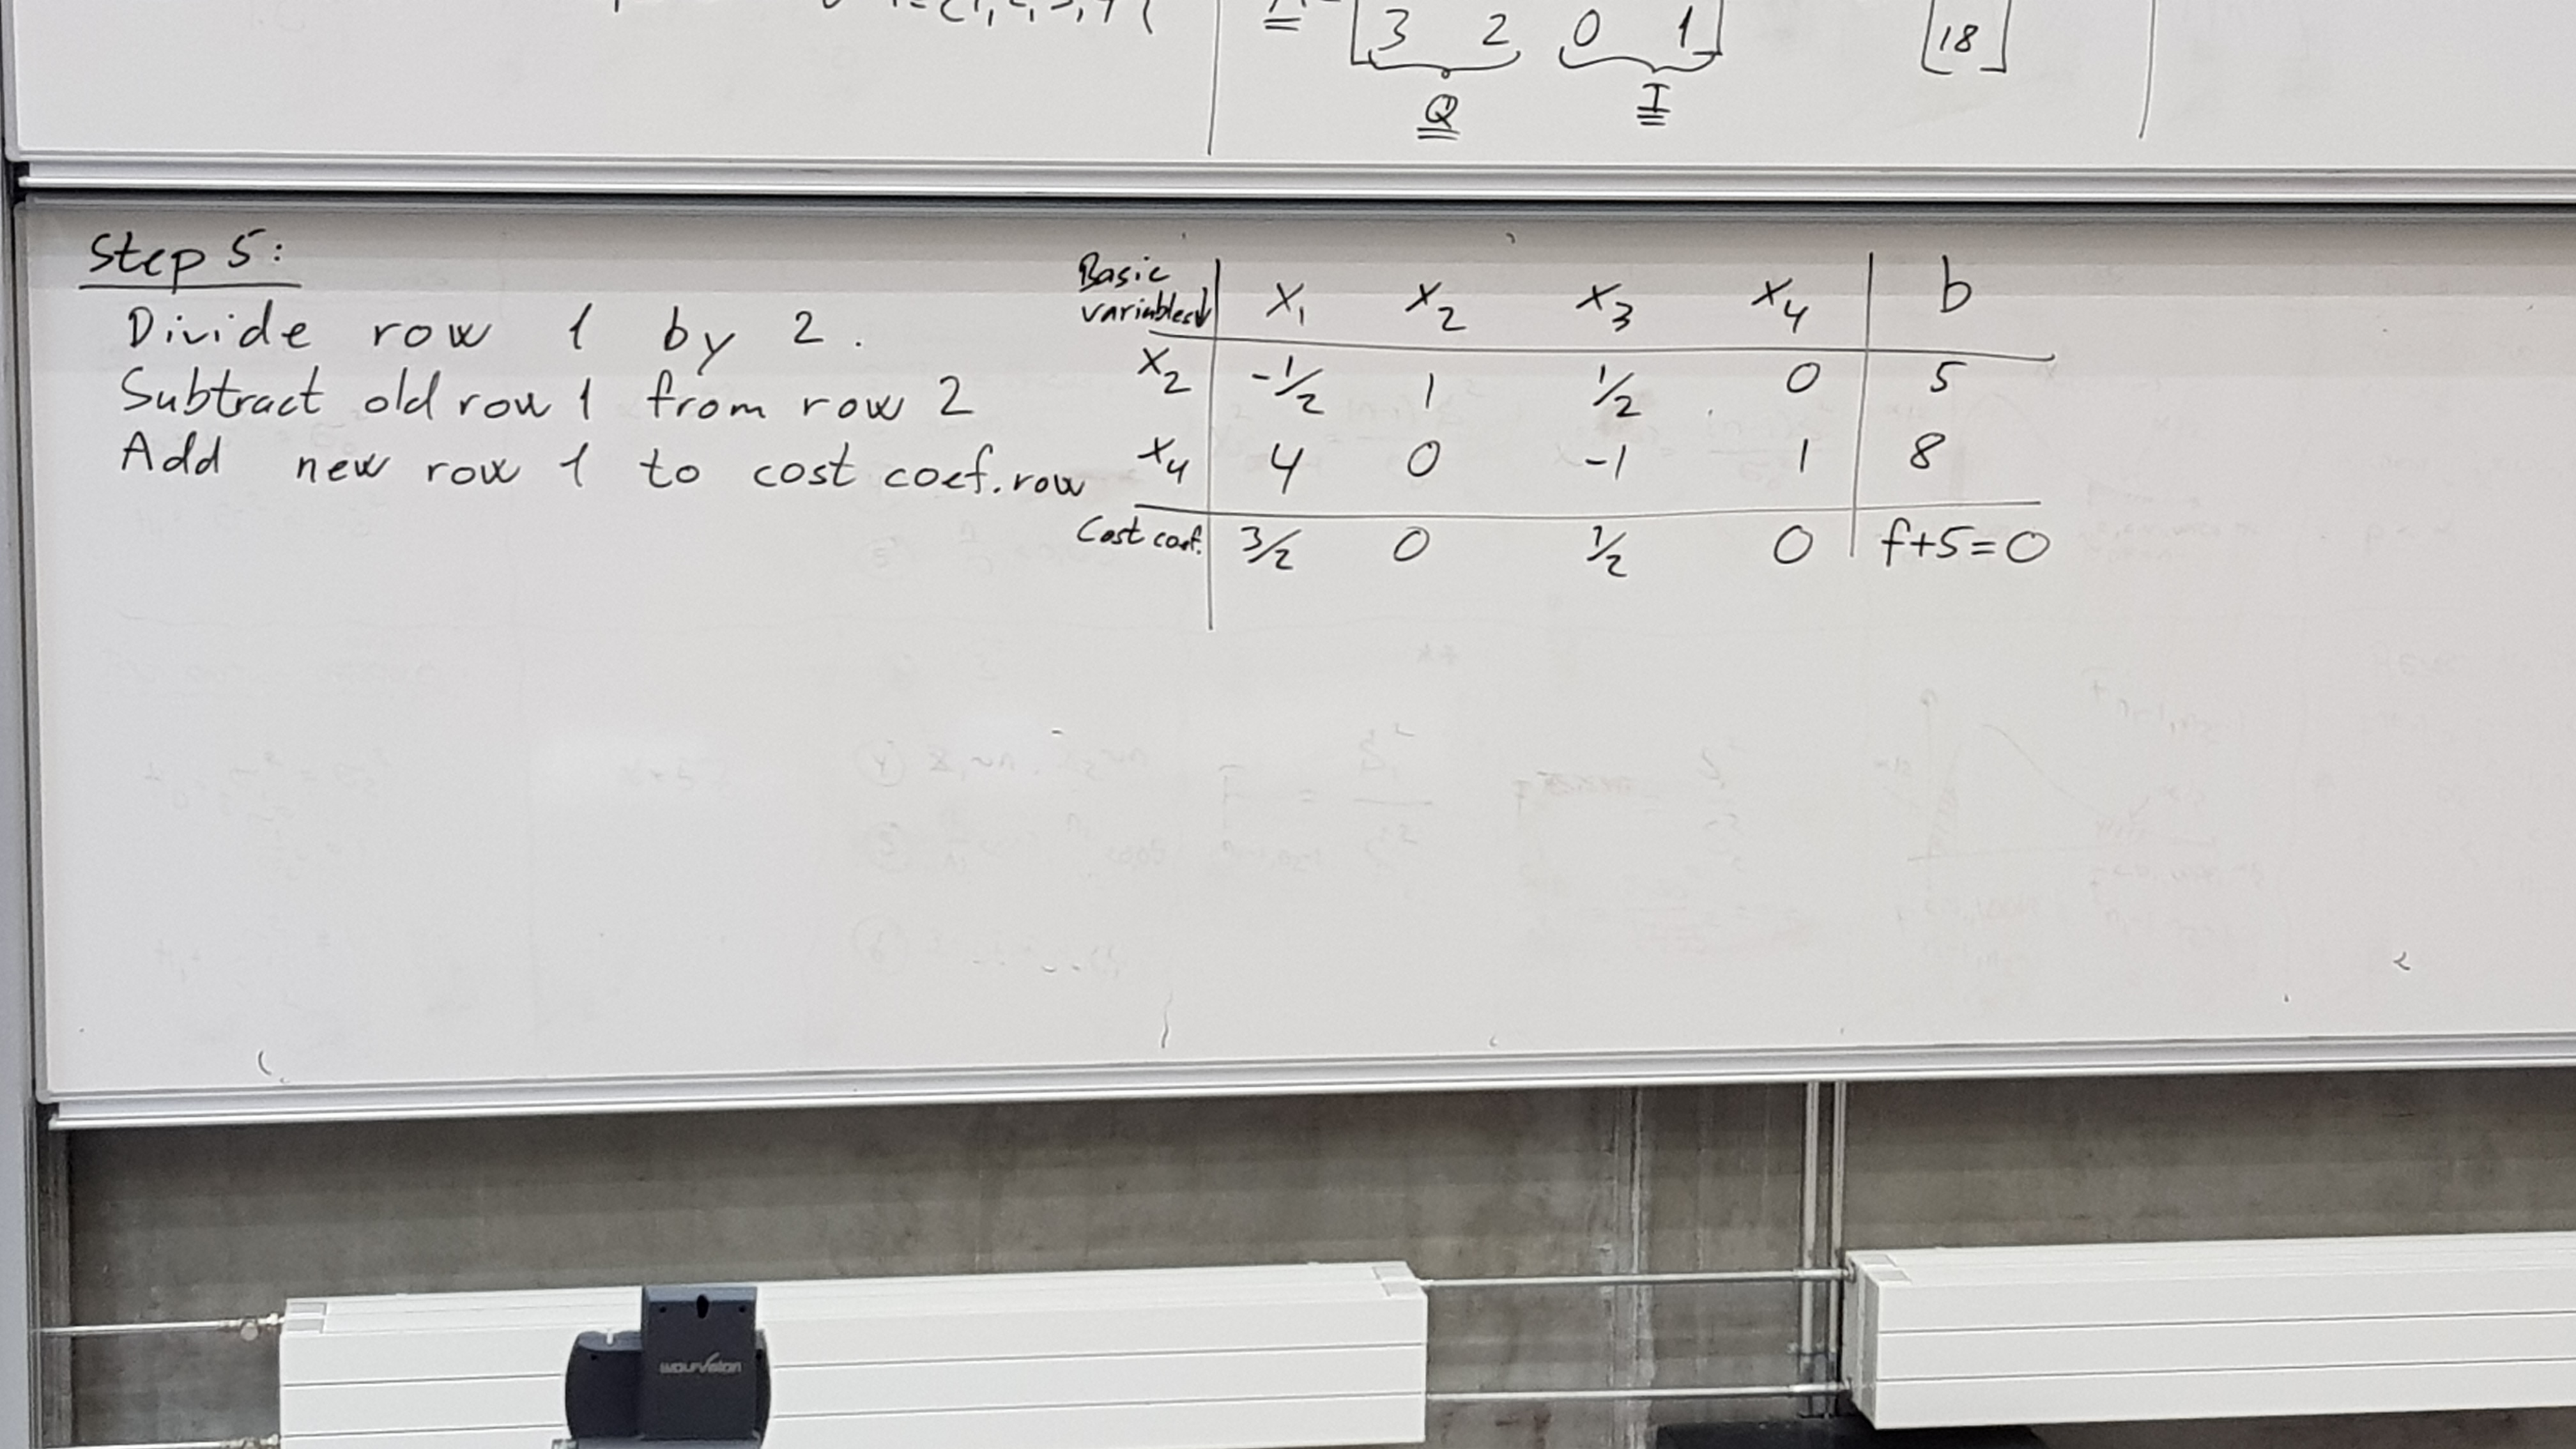 3 2 0 1 18
Q I
Step 5:
Divide row 1 by 2.
Subtract old row 1 from row 2
Add new row 1 to cost coef. row
Basic variables↓ x₁ x₂ x₃ x₄ b
x₂ -1/2 1 1/2 0 5
x₄ 4 0 -1 1 8
Cost coef. 3/2 0 1/2 0 f+5=0
WOLFVISION